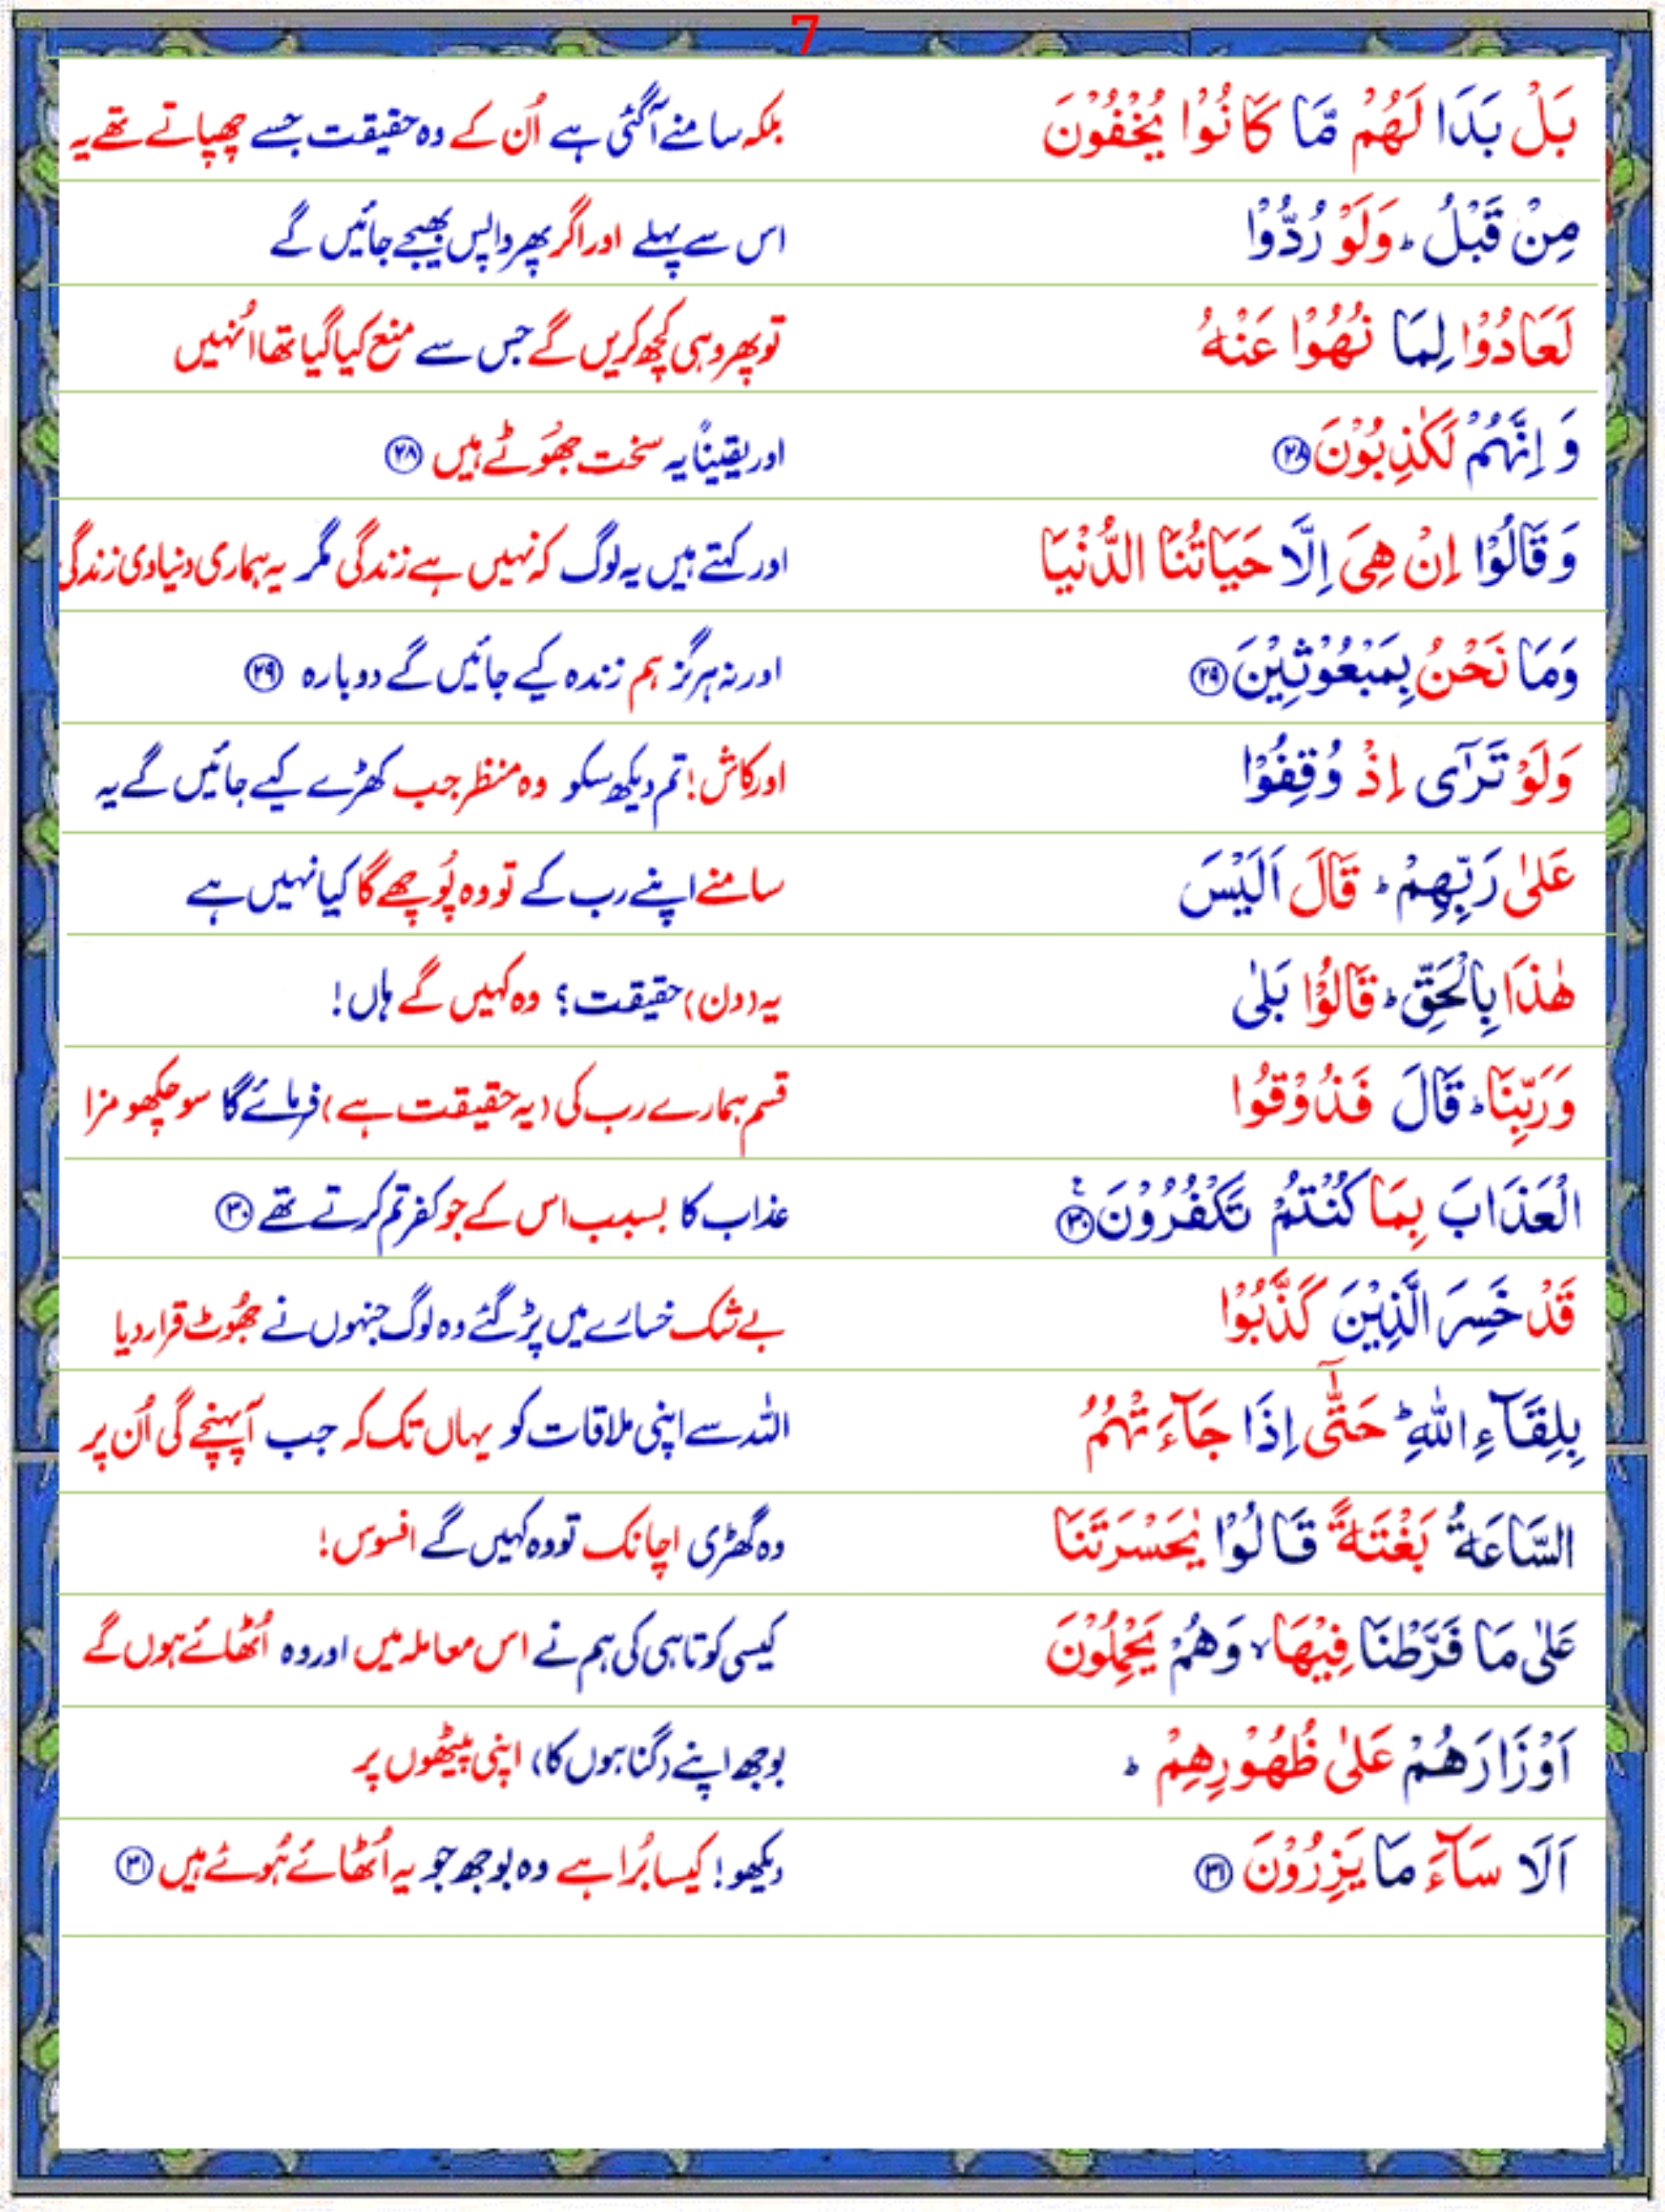 7
بَلْ بَدَا لَهُمْ مَّا كَانُوْا يُخْفُوْنَ بلکہ سامنے آگئی ہے اُن کے وہ حقیقت جسے چھپاتے تھے یہ
مِنْ قَبْلُ ؕ وَلَوْ رُدُّوْا اس سے پہلے اور اگر پھر واپس بھیجے جائیں گے
لَعَادُوْا لِمَا نُهُوْا عَنْهُ تو پھر وہی کچھ کریں گے جس سے منع کیا گیا تھا اُنہیں
وَ اِنَّهُمْ لَكٰذِبُوْنَ ۲۸ اور یقیناً یہ سخت جھُوٹے ہیں ۲۸
وَ قَالُوْا اِنْ هِىَ اِلَّا حَيَاتُنَا الدُّنْيَا اور کہتے ہیں یہ لوگ کہ نہیں ہے زندگی مگر یہ ہماری دنیاوی زندگی
وَمَا نَحْنُ بِمَبْعُوْثِيْنَ ۲۹ اور نہ ہرگز ہم زندہ کیے جائیں گے دوبارہ ۲۹
وَلَوْ تَرٰٓى اِذْ وُقِفُوْا اور کاش! تم دیکھ سکو وہ منظر جب کھڑے کیے جائیں گے یہ
عَلٰى رَبِّهِمْ ؕ قَالَ اَلَيْسَ سامنے اپنے رب کے تو وہ پُوچھے گا کیا نہیں ہے
هٰذَا بِالْحَقِّ ؕ قَالُوْا بَلٰى یہ (دن) حقیقت؟ وہ کہیں گے ہاں!
وَرَبِّنَا ؕ قَالَ فَذُوْقُوا قسم ہمارے رب کی (یہ حقیقت ہے) فرمائے گا سو چکھو مزا
الْعَذَابَ بِمَا كُنْتُمْ تَكْفُرُوْنَ ۳۰ عذاب کا بسبب اس کے جو کفر تم کرتے تھے ۳۰
قَدْ خَسِرَ الَّذِيْنَ كَذَّبُوْا بے شک خسارے میں پڑ گئے وہ لوگ جنہوں نے جھُوٹ قرار دیا
بِلِقَآءِ اللّٰهِ ؕ حَتّٰٓى اِذَا جَآءَتْهُمُ اللہ سے اپنی ملاقات کو یہاں تک کہ جب آپہنچے گی اُن پر
السَّاعَةُ بَغْتَةً قَالُوْا يٰحَسْرَتَنَا وہ گھڑی اچانک تو وہ کہیں گے افسوس!
عَلٰى مَا فَرَّطْنَا فِيْهَا ۙ وَهُمْ يَحْمِلُوْنَ کیسی کوتاہی کی ہم نے اس معاملہ میں اور وہ اُٹھائے ہوں گے
اَوْزَارَهُمْ عَلٰى ظُهُوْرِهِمْ ؕ بوجھ اپنے (گناہوں کا) اپنی پیٹھوں پر
اَلَا سَآءَ مَا يَزِرُوْنَ ۳۱ دیکھو! کیسا بُرا ہے وہ بوجھ جو یہ اُٹھائے ہُوئے ہیں ۳۱